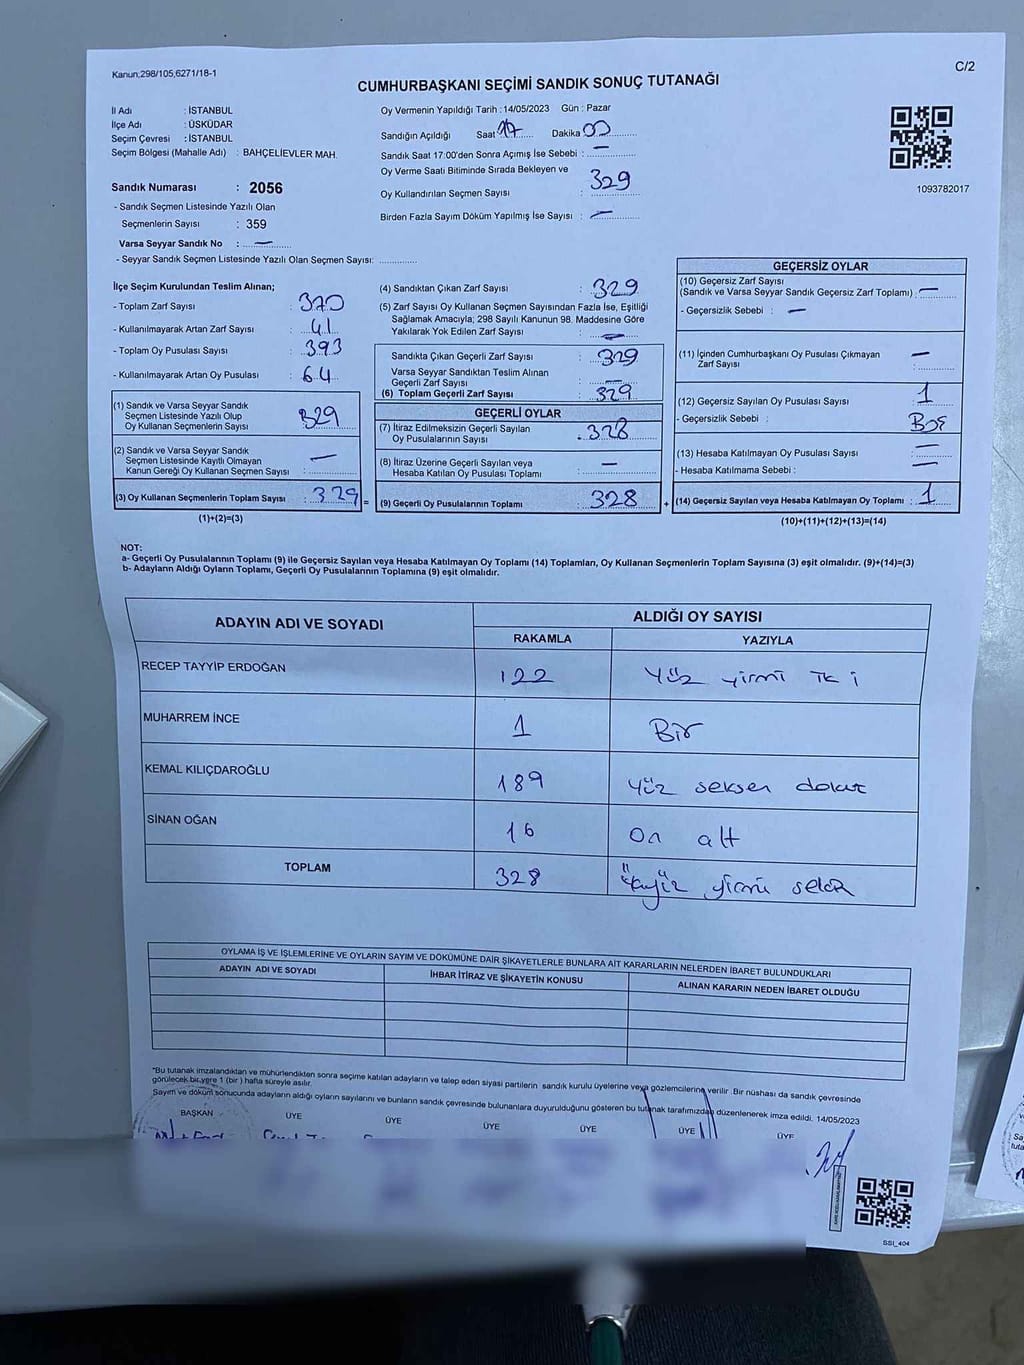 Kanun;298/105;6271/18-1
C/2
CUMHURBAŞKANI SEÇİMİ SANDIK SONUÇ TUTANAĞI
İl Adı : İSTANBUL
İlçe Adı : ÜSKÜDAR
Seçim Çevresi : İSTANBUL
Seçim Bölgesi (Mahalle Adı) : BAHÇELİEVLER MAH.
Sandık Numarası : 2056
- Sandık Seçmen Listesinde Yazılı Olan
Seçmenlerin Sayısı : 359
Varsa Seyyar Sandık No : —
- Seyyar Sandık Seçmen Listesinde Yazılı Olan Seçmen Sayısı: ..............
Oy Vermenin Yapıldığı Tarih : 14/05/2023 Gün : Pazar
Sandığın Açıldığı Saat 17 Dakika 00
Sandık Saat 17:00'den Sonra Açımış İse Sebebi : —
Oy Verme Saati Bitiminde Sırada Bekleyen ve
Oy Kullandırılan Seçmen Sayısı : 329
Birden Fazla Sayım Döküm Yapılmış İse Sayısı : —
1093782017
İlçe Seçim Kurulundan Teslim Alınan;
- Toplam Zarf Sayısı : 370
- Kullanılmayarak Artan Zarf Sayısı : 41
- Toplam Oy Pusulası Sayısı : 393
- Kullanılmayarak Artan Oy Pusulası : 64
(1) Sandık ve Varsa Seyyar Sandık
Seçmen Listesinde Yazılı Olup
Oy Kullanan Seçmenlerin Sayısı : 329
(2) Sandık ve Varsa Seyyar Sandık
Seçmen Listesinde Kayıtlı Olmayan
Kanun Gereği Oy Kullanan Seçmen Sayısı : —
(3) Oy Kullanan Seçmenlerin Toplam Sayısı : 329 =
(1)+(2)=(3)
(4) Sandıktan Çıkan Zarf Sayısı : 329
(5) Zarf Sayısı Oy Kullanan Seçmen Sayısından Fazla İse, Eşitliği
Sağlamak Amacıyla; 298 Sayılı Kanunun 98. Maddesine Göre
Yakılarak Yok Edilen Zarf Sayısı : —
Sandıkta Çıkan Geçerli Zarf Sayısı : 329
Varsa Seyyar Sandıktan Teslim Alınan
Geçerli Zarf Sayısı : —
(6) Toplam Geçerli Zarf Sayısı : 329
GEÇERLİ OYLAR
(7) İtiraz Edilmeksizin Geçerli Sayılan
Oy Pusulalarının Sayısı : 328
(8) İtiraz Üzerine Geçerli Sayılan veya
Hesaba Katılan Oy Pusulası Toplamı : —
(9) Geçerli Oy Pusulalarının Toplamı : 328 +
GEÇERSİZ OYLAR
(10) Geçersiz Zarf Sayısı
(Sandık ve Varsa Seyyar Sandık Geçersiz Zarf Toplamı) : —
- Geçersizlik Sebebi : —
(11) İçinden Cumhurbaşkanı Oy Pusulası Çıkmayan
Zarf Sayısı : —
(12) Geçersiz Sayılan Oy Pusulası Sayısı : 1
- Geçersizlik Sebebi :
(13) Hesaba Katılmayan Oy Pusulası Sayısı : —
- Hesaba Katılmama Sebebi : —
(14) Geçersiz Sayılan veya Hesaba Katılmayan Oy Toplamı : 1
(10)+(11)+(12)+(13)=(14)
NOT:
a- Geçerli Oy Pusulalarının Toplamı (9) ile Geçersiz Sayılan veya Hesaba Katılmayan Oy Toplamı (14) Toplamları, Oy Kullanan Seçmenlerin Toplam Sayısına (3) eşit olmalıdır. (9)+(14)=(3)
b- Adayların Aldığı Oyların Toplamı, Geçerli Oy Pusulalarının Toplamına (9) eşit olmalıdır.
ADAYIN ADI VE SOYADI ALDIĞI OY SAYISI
RAKAMLA YAZIYLA
RECEP TAYYİP ERDOĞAN 122 Yüz yirmi iki
MUHARREM İNCE 1 Bir
KEMAL KILIÇDAROĞLU 189 yüz seksen dokuz
SİNAN OĞAN 16 On altı
TOPLAM 328 üçyüz yirmi sekiz
OYLAMA İŞ VE İŞLEMLERİNE VE OYLARIN SAYIM VE DÖKÜMÜNE DAİR ŞİKAYETLERLE BUNLARA AİT KARARLARIN NELERDEN İBARET BULUNDUKLARI
ADAYIN ADI VE SOYADI İHBAR İTİRAZ VE ŞİKAYETİN KONUSU ALINAN KARARIN NEDEN İBARET OLDUĞU
*Bu tutanak imzalandıktan ve mühürlendikten sonra seçime katılan adayların ve talep eden siyasi partilerin sandık kurulu üyelerine veya gözlemcilerine verilir .Bir nüshası da sandık çevresinde
görülecek bir yere 1 (bir ) hafta süreyle asılır.
Sayım ve döküm sonucunda adayların aldığı oyların sayılarını ve bunların sandık çevresinde bulunanlara duyurulduğunu gösteren bu tutanak tarafımızdan düzenlenerek imza edildi. 14/05/2023
BAŞKAN ÜYE ÜYE ÜYE ÜYE ÜYE ÜYE
SSI_404